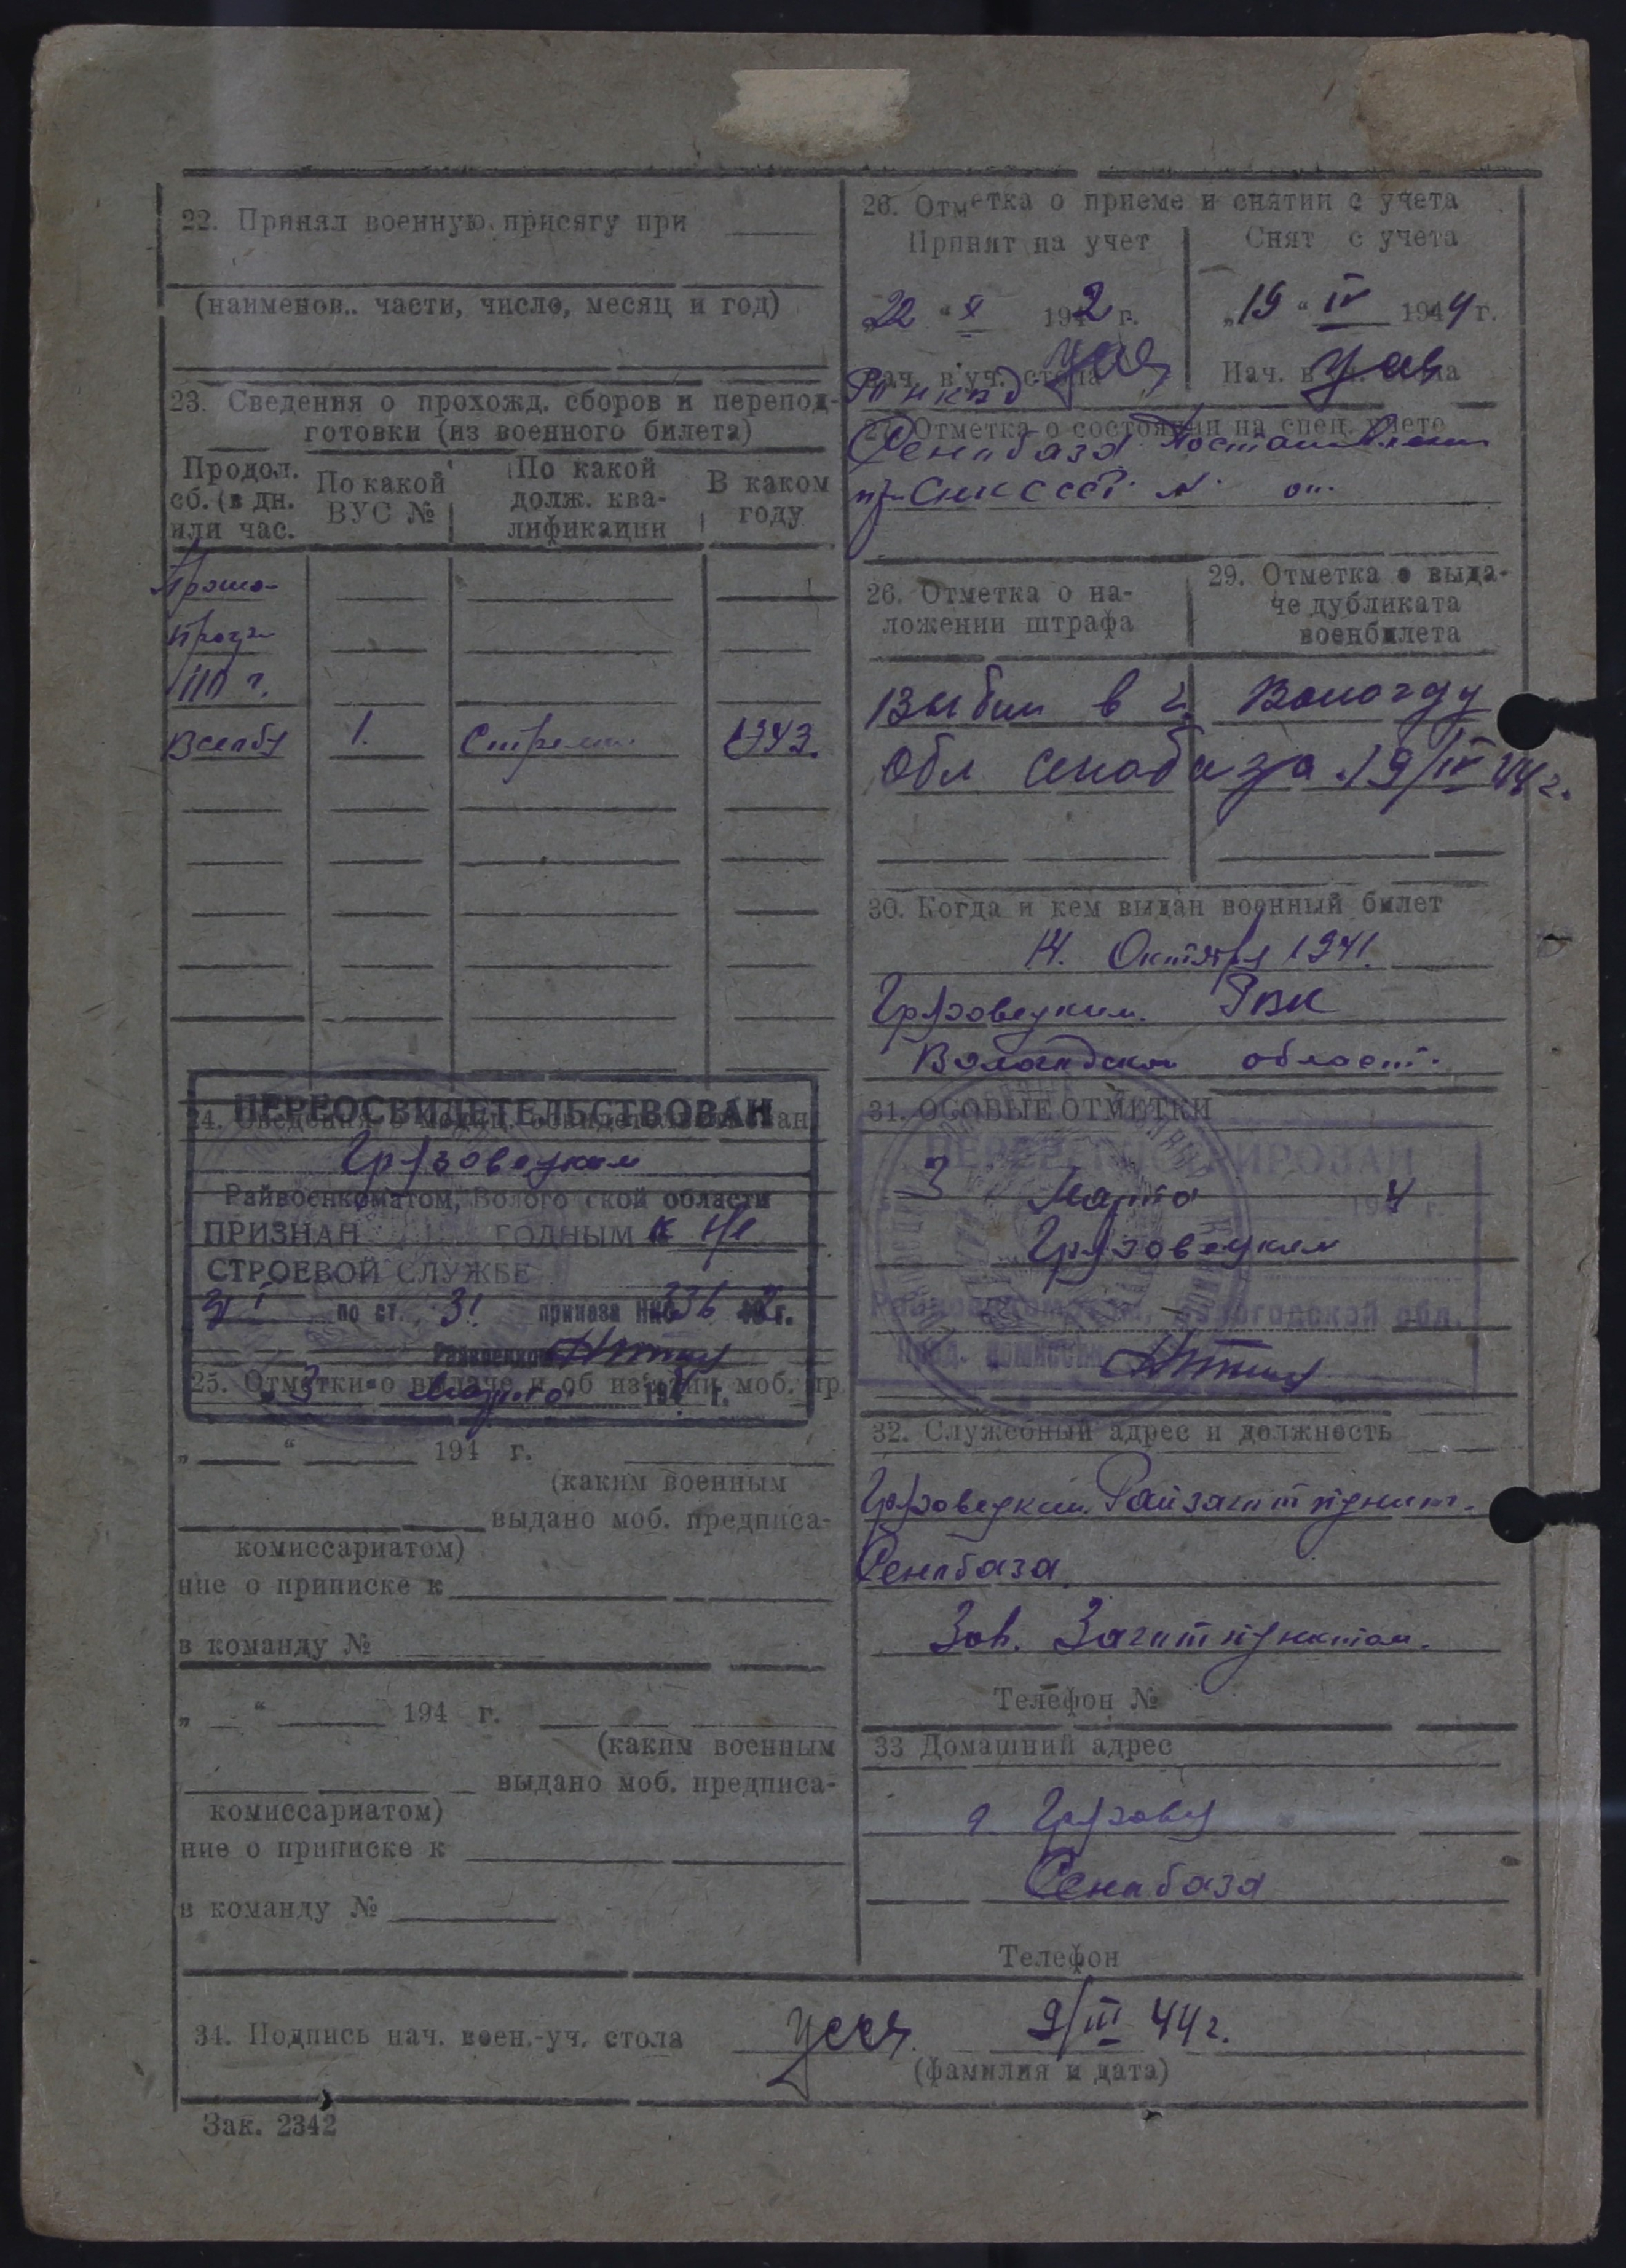 22. Принял военную присягу при
(наименов.. части, число, месяц и год)
23. Сведения о прохожд. сборов и перепод-
готовки (из военного билета)
Продол.
сб. (в дн.
или час.
По какой
ВУС №
По какой
долж. ква-
лификации
В каком
году
110 г.
1.
1943.
ПЕРЕОСВИДЕТЕЛЬСТВОВАН
24. Сведения о медиц.
Грязовецким
Райвоенкоматом, Волого ской области
ПРИЗНАН ГОДНЫМ к н/
СТРОЕВОЙ СЛУЖБЕ
по ст. 31 приказа НКО 336 42 г.
Райвоенком
25. Отметки о выдаче и об изъятии моб. пр
3 Марта 194 г.
„ “ 194 г.
(каким военным
выдано моб. предписа-
комиссариатом)
ние о приписке к
в команду №
„ “ 194 г.
(каким военным
выдано моб. предписа-
комиссариатом)
ние о приписке к
в команду №
26. Отметка о приеме и снятии с учета
Принят на учет
Снят с учета
„22 “ X 1942 г.
„19 “ IV 1944 г.
Нач. в. уч. стола
Нач. в. уч. стола
27. Отметка о состоянии на спец. учете
Сенобаза Постановление
СНК СССР № от
26. Отметка о на-
ложении штрафа
29. Отметка о выда-
че дубликата
военбилета
Выбыл в г. Вологду
Обл сенобаза 19/IV 44 г.
30. Когда и кем выдан военный билет
14. Октября 1941.
Грязовецким РВК
Вологодской област.
31. ОСОБЫЕ ОТМЕТКИ
ПЕРЕРЕГИСТРИРОВАН
3 Марта 194 4 г.
Грязовецким
Райвоенкоматом, Вологодской обл.
Пред. комиссии
32. Служебный адрес и должность
Грязовецкий Райзаготпункт.
Сенобаза
Зав. Заготпунктом.
Телефон №
33 Домашний адрес
г. Грязовец
Сенобаза
Телефон
34. Подпись нач. воен.-уч. стола
9/III 44 г.
(фамилия и дата)
Зак. 2342